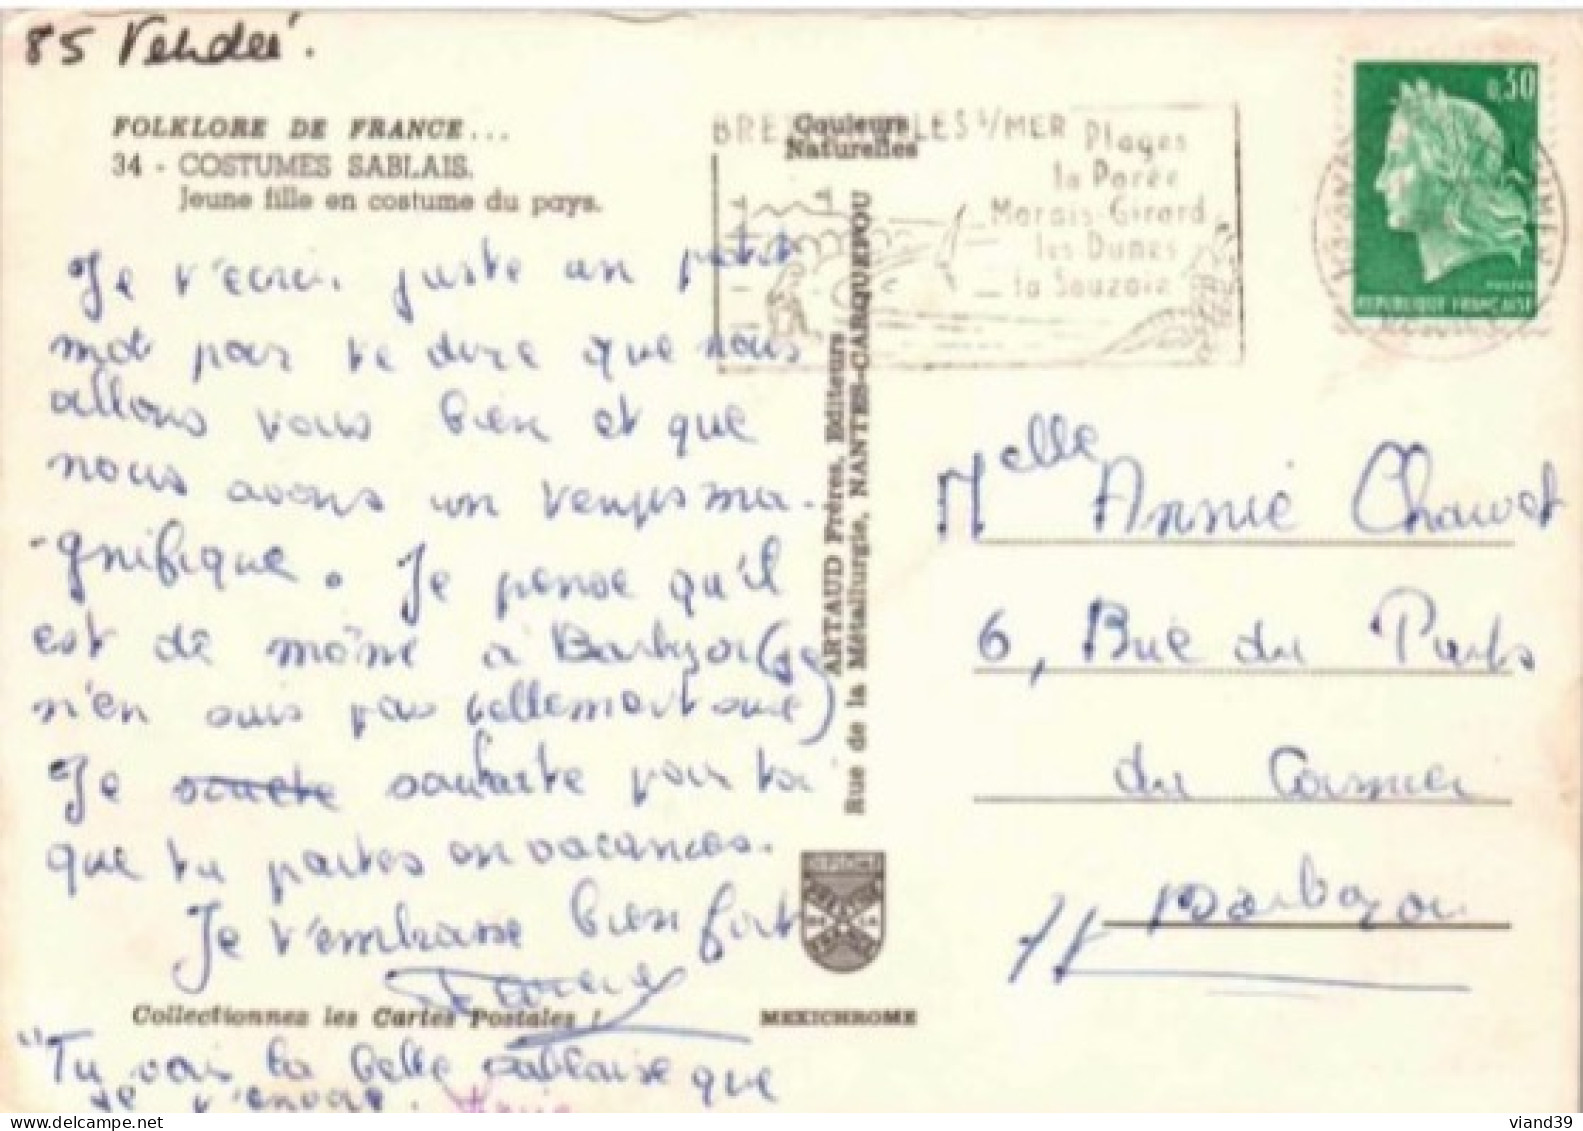 85 Vendée.
FOLKLORE DE FRANCE...
34 - COSTUMES SABLAIS.
Jeune fille en costume du pays.
Je t'écris juste un petit
mot pour te dire que nous
allons tous bien et que
nous avons un temps ma-
-gnifique. Je pense qu'il
est de même à Barbezou (je
n'en suis pas tellement sure)
Je souhaite pour toi
que tu partes en vacances.
Je t'embrasse bien fort
Collectionnez les Cartes Postales !
"Tu vois la belle sablaise que
je t'envoie.
Couleurs
Naturelles
ARTAUD Frères, Editeurs
Rue de la Métallurgie, NANTES-CARQUEFOU
MEXICHROME
S/MER
Plages
la Parée
Marais-Girard
les Dunes
la Sauzaie
0,30
POSTES
REPUBLIQUE FRANÇAISE
Melle Annie Chauvet
6, Rue du Puits
du Cormier
viand39